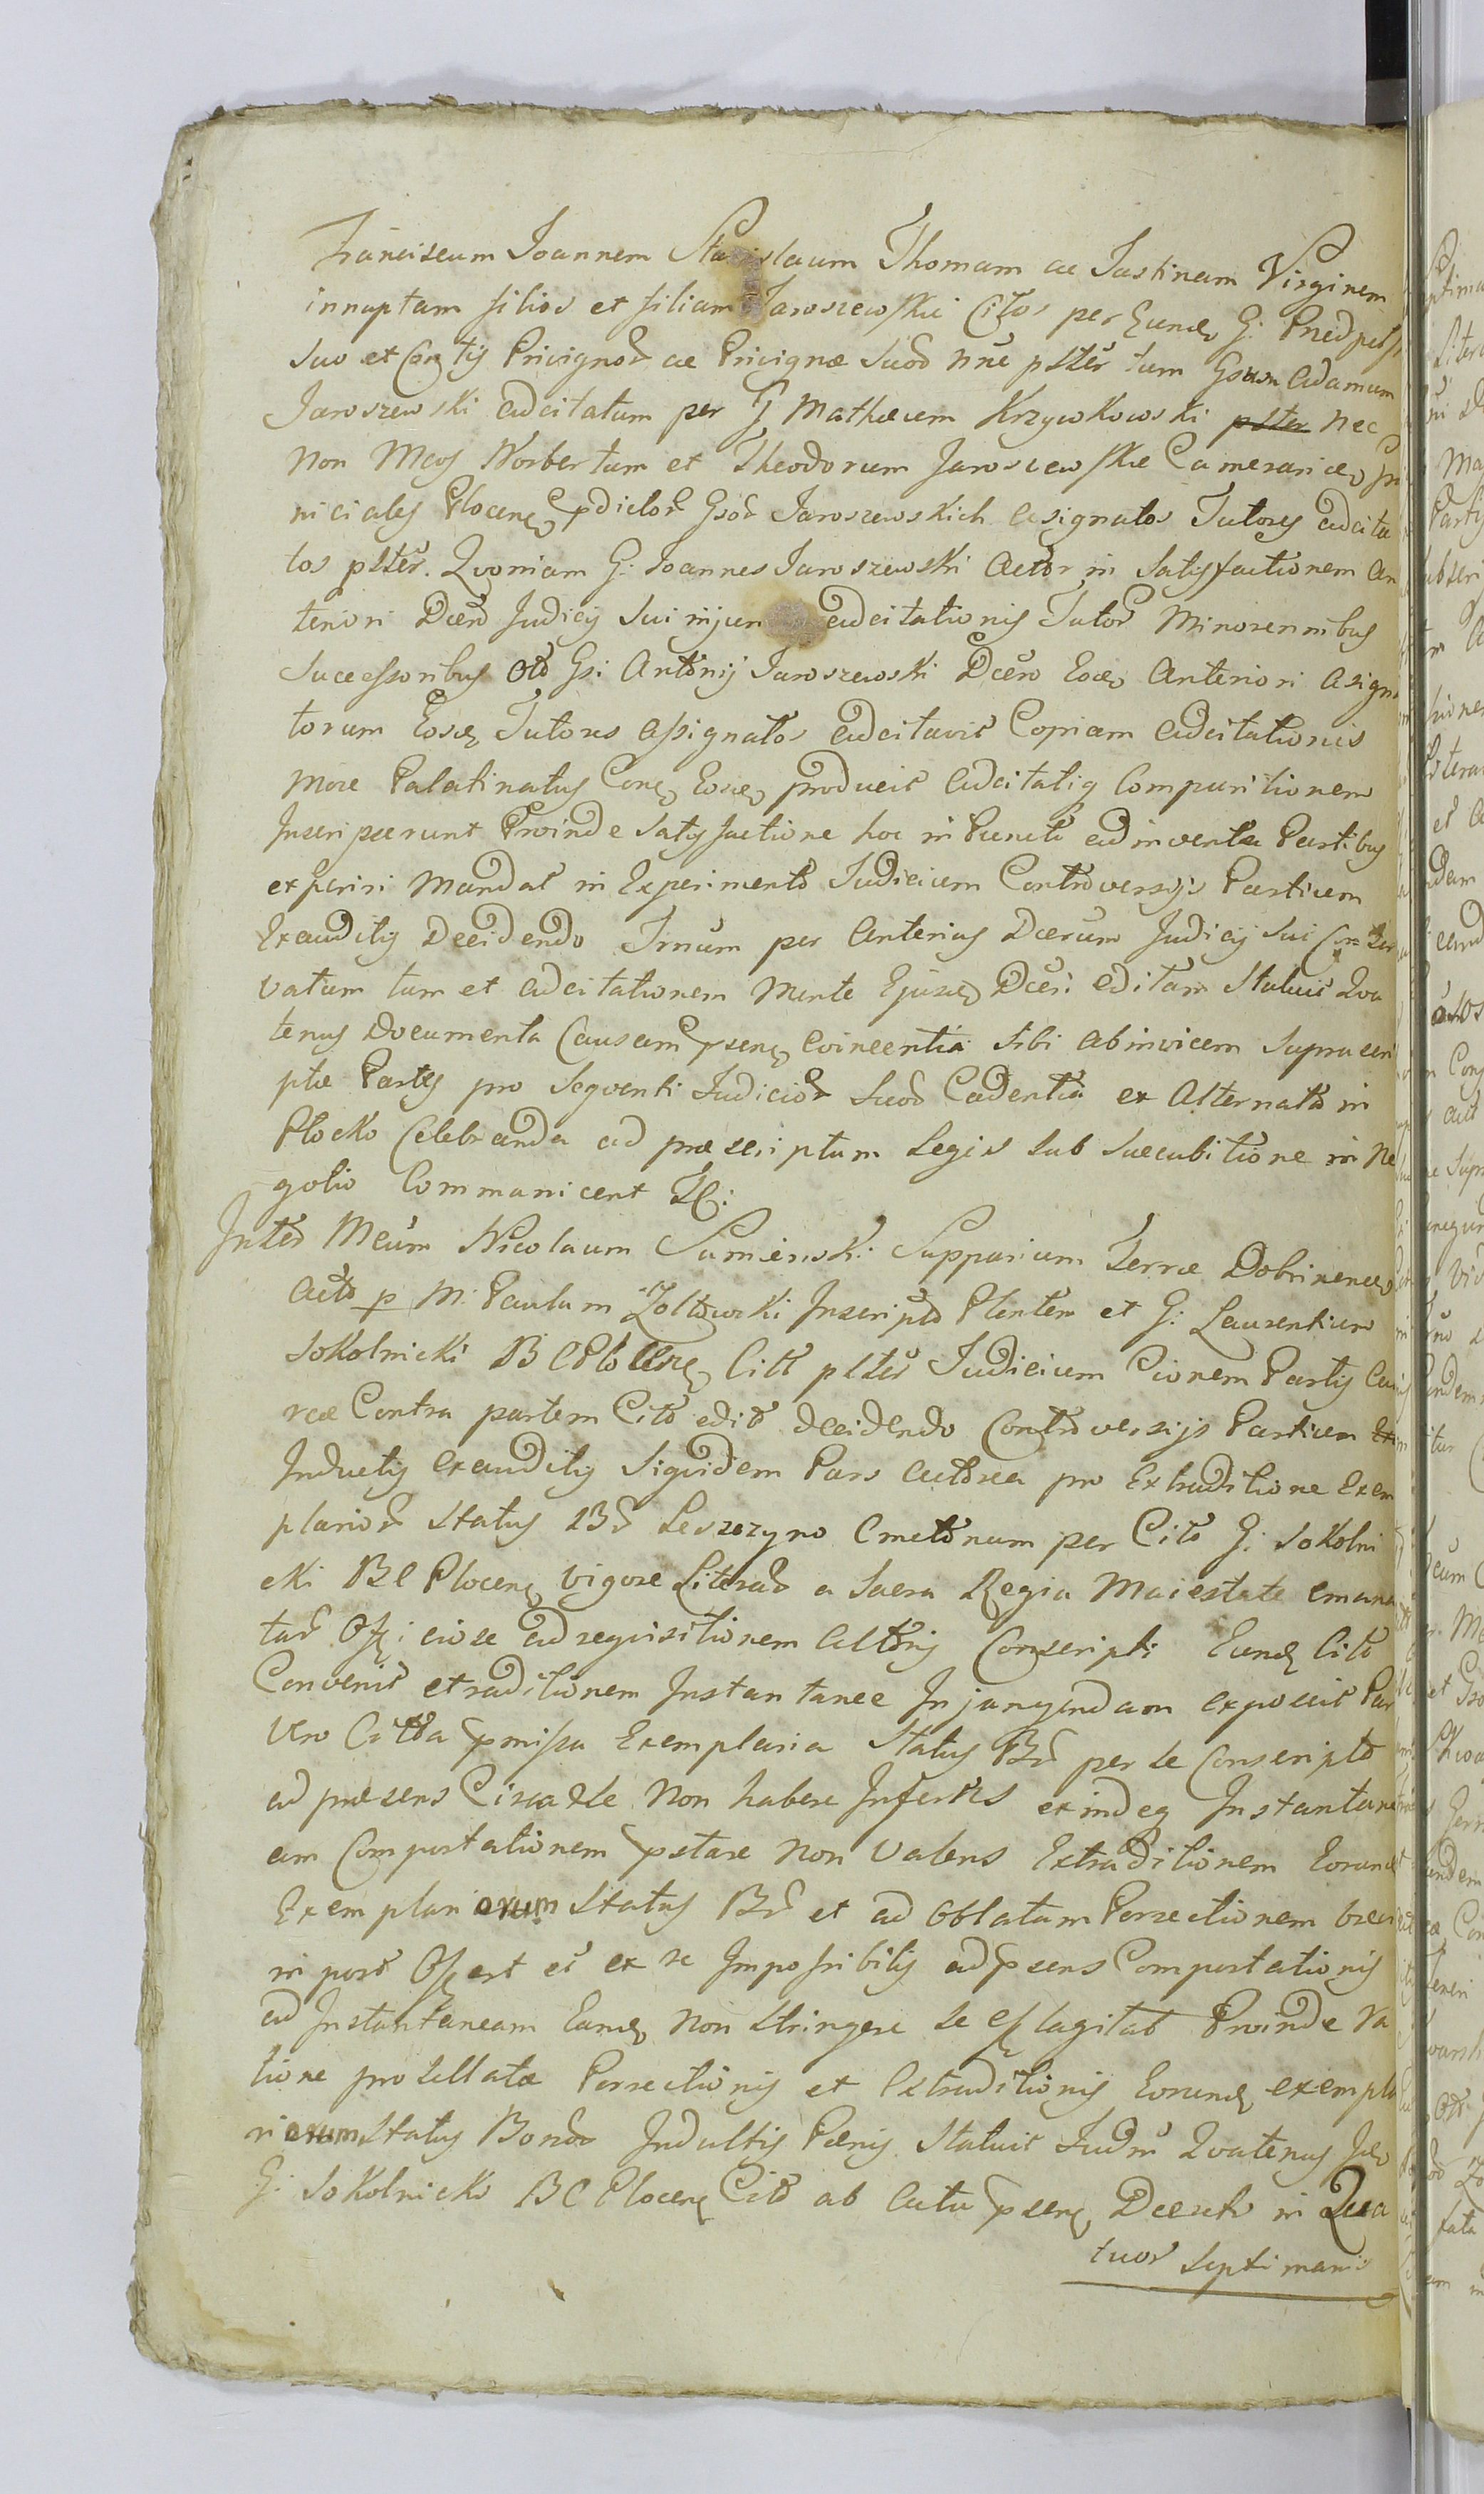 Franciscum Joannem Stanislaum Thomam ac Justinam Virginem
innuptam filios et filiam Jaroszewskie Citos per Eund G:
suo et Conthlis Privignor ac Privignæ suor nne pltēr tum Gsum Adamum
Jaroszewski adcitatum per G Mathæum Krzywkowski pltēr Nec
Non Mcos Norbertum et Theodorum Jaroszewskie Camerarios
niciales Plocens pdictor Gsor Jaroszewskich asignatos Tutores adcita
tos pltēr. Quoniam G: Joannes Jaroszewski Actor in Satisfactionem An
teriori Dcto Judicij Sui injun adcitationis Tutor Minorennibus
Sucessoribus Oto Gsi Antonij Jaroszewski Dcto Eod Anteriori Asigna
torum Eosd Tutores assignatos Adcitavit Copiam Adcitationis
More Palatinatus Conc Eosd producit Adcitatis Comparitionem
Inscripserunt Proinde Satisfactione hoc in Puncto adinventa Partibus
experiri Mandat in Experimento Judicium Controversijs Partium
Exauditis Decidendo Trnum per Anterius Dctum Judicij Sui Conser
vatum tum et adcitationem Mente Ejusd Dcti editam Statuit Qua
tenus Documenta Causam psens Concernentia Sibi abinvicem Suprascri
ptæ Partes pro Sequenti Judicior Suor Cadentia ex Alternata in
Plocko Celebranda ad præscriptum Legis Sub Succubitione in Ne
gotio Communicent
Inter Mcum Nicolaum Sumiński Supparium Terræ Dobrinens
Acto p M: Paulum Zołtowski Inscripto Plentem et G: Laurentium
Sokolnicki BC Plocens Citt pltēr Judicium Cionem Partis
reæ Contra partem Cito edit decidendo Controversijs Partium
Inductis exauditis Siquidem Pars Actorea pro Extraditione Exem
plarior Status Br Leszczyno Cmetonum per Cito G: Sokolni
cki BC Plocens vigore Literar a Sacra Regia Maiestate emana
tar Officiose ad requisitionem Actoris Conscripti Eund Cito
Convenit extraditionem Instantanee Injungendam exposcit Par
Vero Citta pmissa Exemplaria Status Br per se Conscripto
ad præsens Circa Se Non habere Infert exindeq Instantane
am Comportationem pstare Non Valens Extraditionem Eorund
Exemplariorum Status Br et ad Oblatam Porrectionem
in post Offert et ex re Impossibilis ad psens Comportationis
ad Instantaneam Eand Non Stringere Se efflagitat Proinde Ra
tione protellatæ Porrectionis et Extraditionis Eorund exempla
riorum Status Bonor Indultis Pænis Statuit Judm Quatenus
G: Sokolnicki BC Plocens Cito ab Actu psens Dcreti in Qua
tuor Septimanis